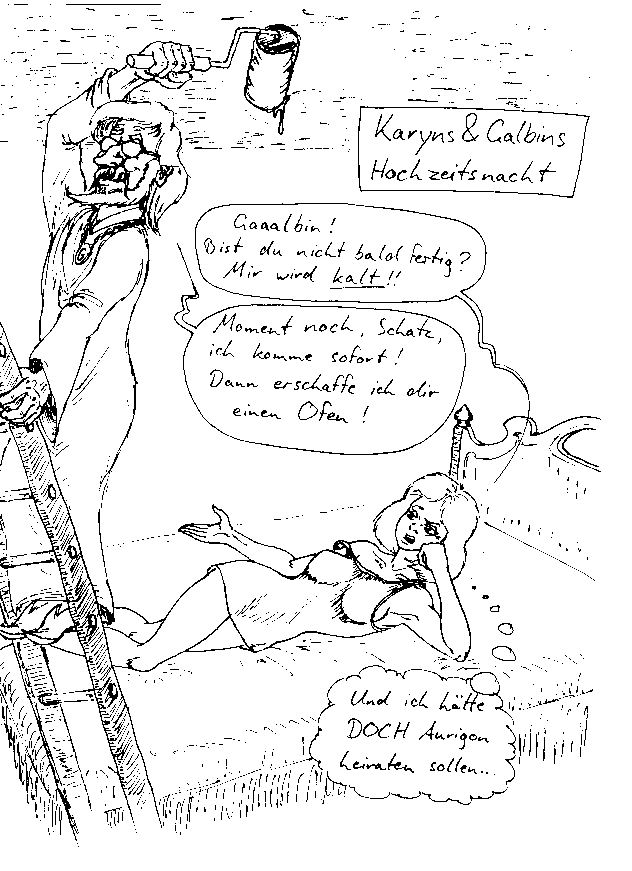 Karyns & Galbins
Hochzeitsnacht
Gaaalbin!
Bist du nicht bald fertig?
Mir wird kalt!!
Moment noch, Schatz,
ich komme sofort!
Dann erschaffe ich dir
einen Ofen!
Und ich hätte
DOCH Aurigon
heiraten sollen...